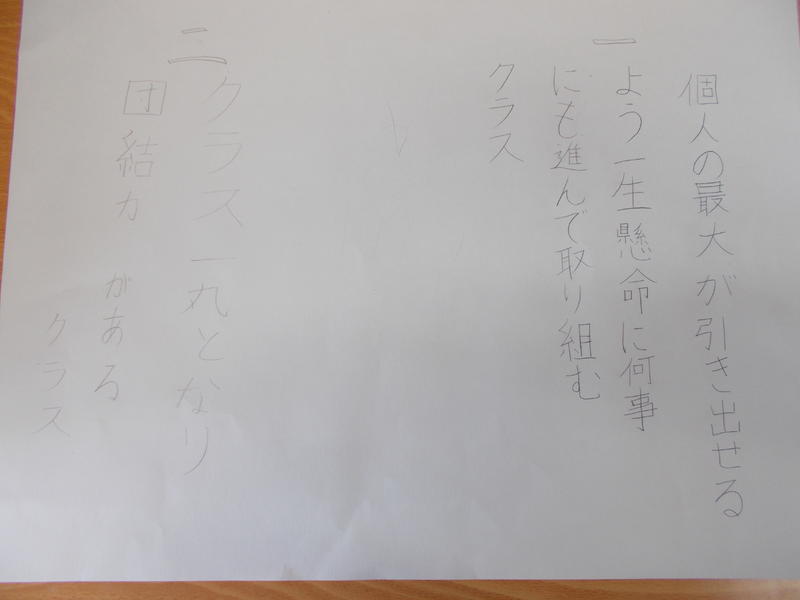 一
個人の最大が引き出せる
よう一生懸命に何事
にも進んで取り組む
クラス
二
クラス一丸となり
団結力がある
クラス